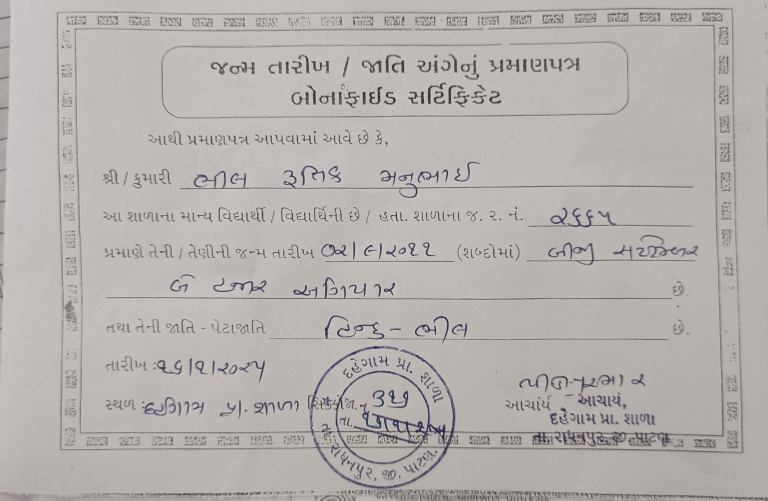 જન્મ તારીખ / જાતિ અંગેનું પ્રમાણપત્ર
બોનાફાઈડ સર્ટિફિકેટ
આથી પ્રમાણપત્ર આપવામાં આવે છે કે,
શ્રી / કુમારી ભીલ રૂતિક મનુભાઈ
આ શાળાના માન્ય વિદ્યાર્થી / વિદ્યાર્થિની છે / હતા. શાળાના જ. ર. નં. ૨૬૬૫
પ્રમાણે તેની / તેણીની જન્મ તારીખ ૦૨/૯/૨૦૧૧ (શબ્દોમાં) બીજી સપ્ટેમ્બર
બે હજાર અગિયાર છે.
તથા તેની જાતિ - પેટાજાતિ હિન્દુ - ભીલ છે.
તારીખ : ૧૬/૧/૨૦૨૫
સ્થળ : દહેગામ પ્રા. શાળા
દહેગામ પ્રા. શાળા
જા.નં. ૩૧૭
તા.
તા. રાધનપુર, જી. પાટણ.
આચાર્ય
આચાર્ય,
દહેગામ પ્રા. શાળા
તા. રાધનપુર, જી. પાટણ